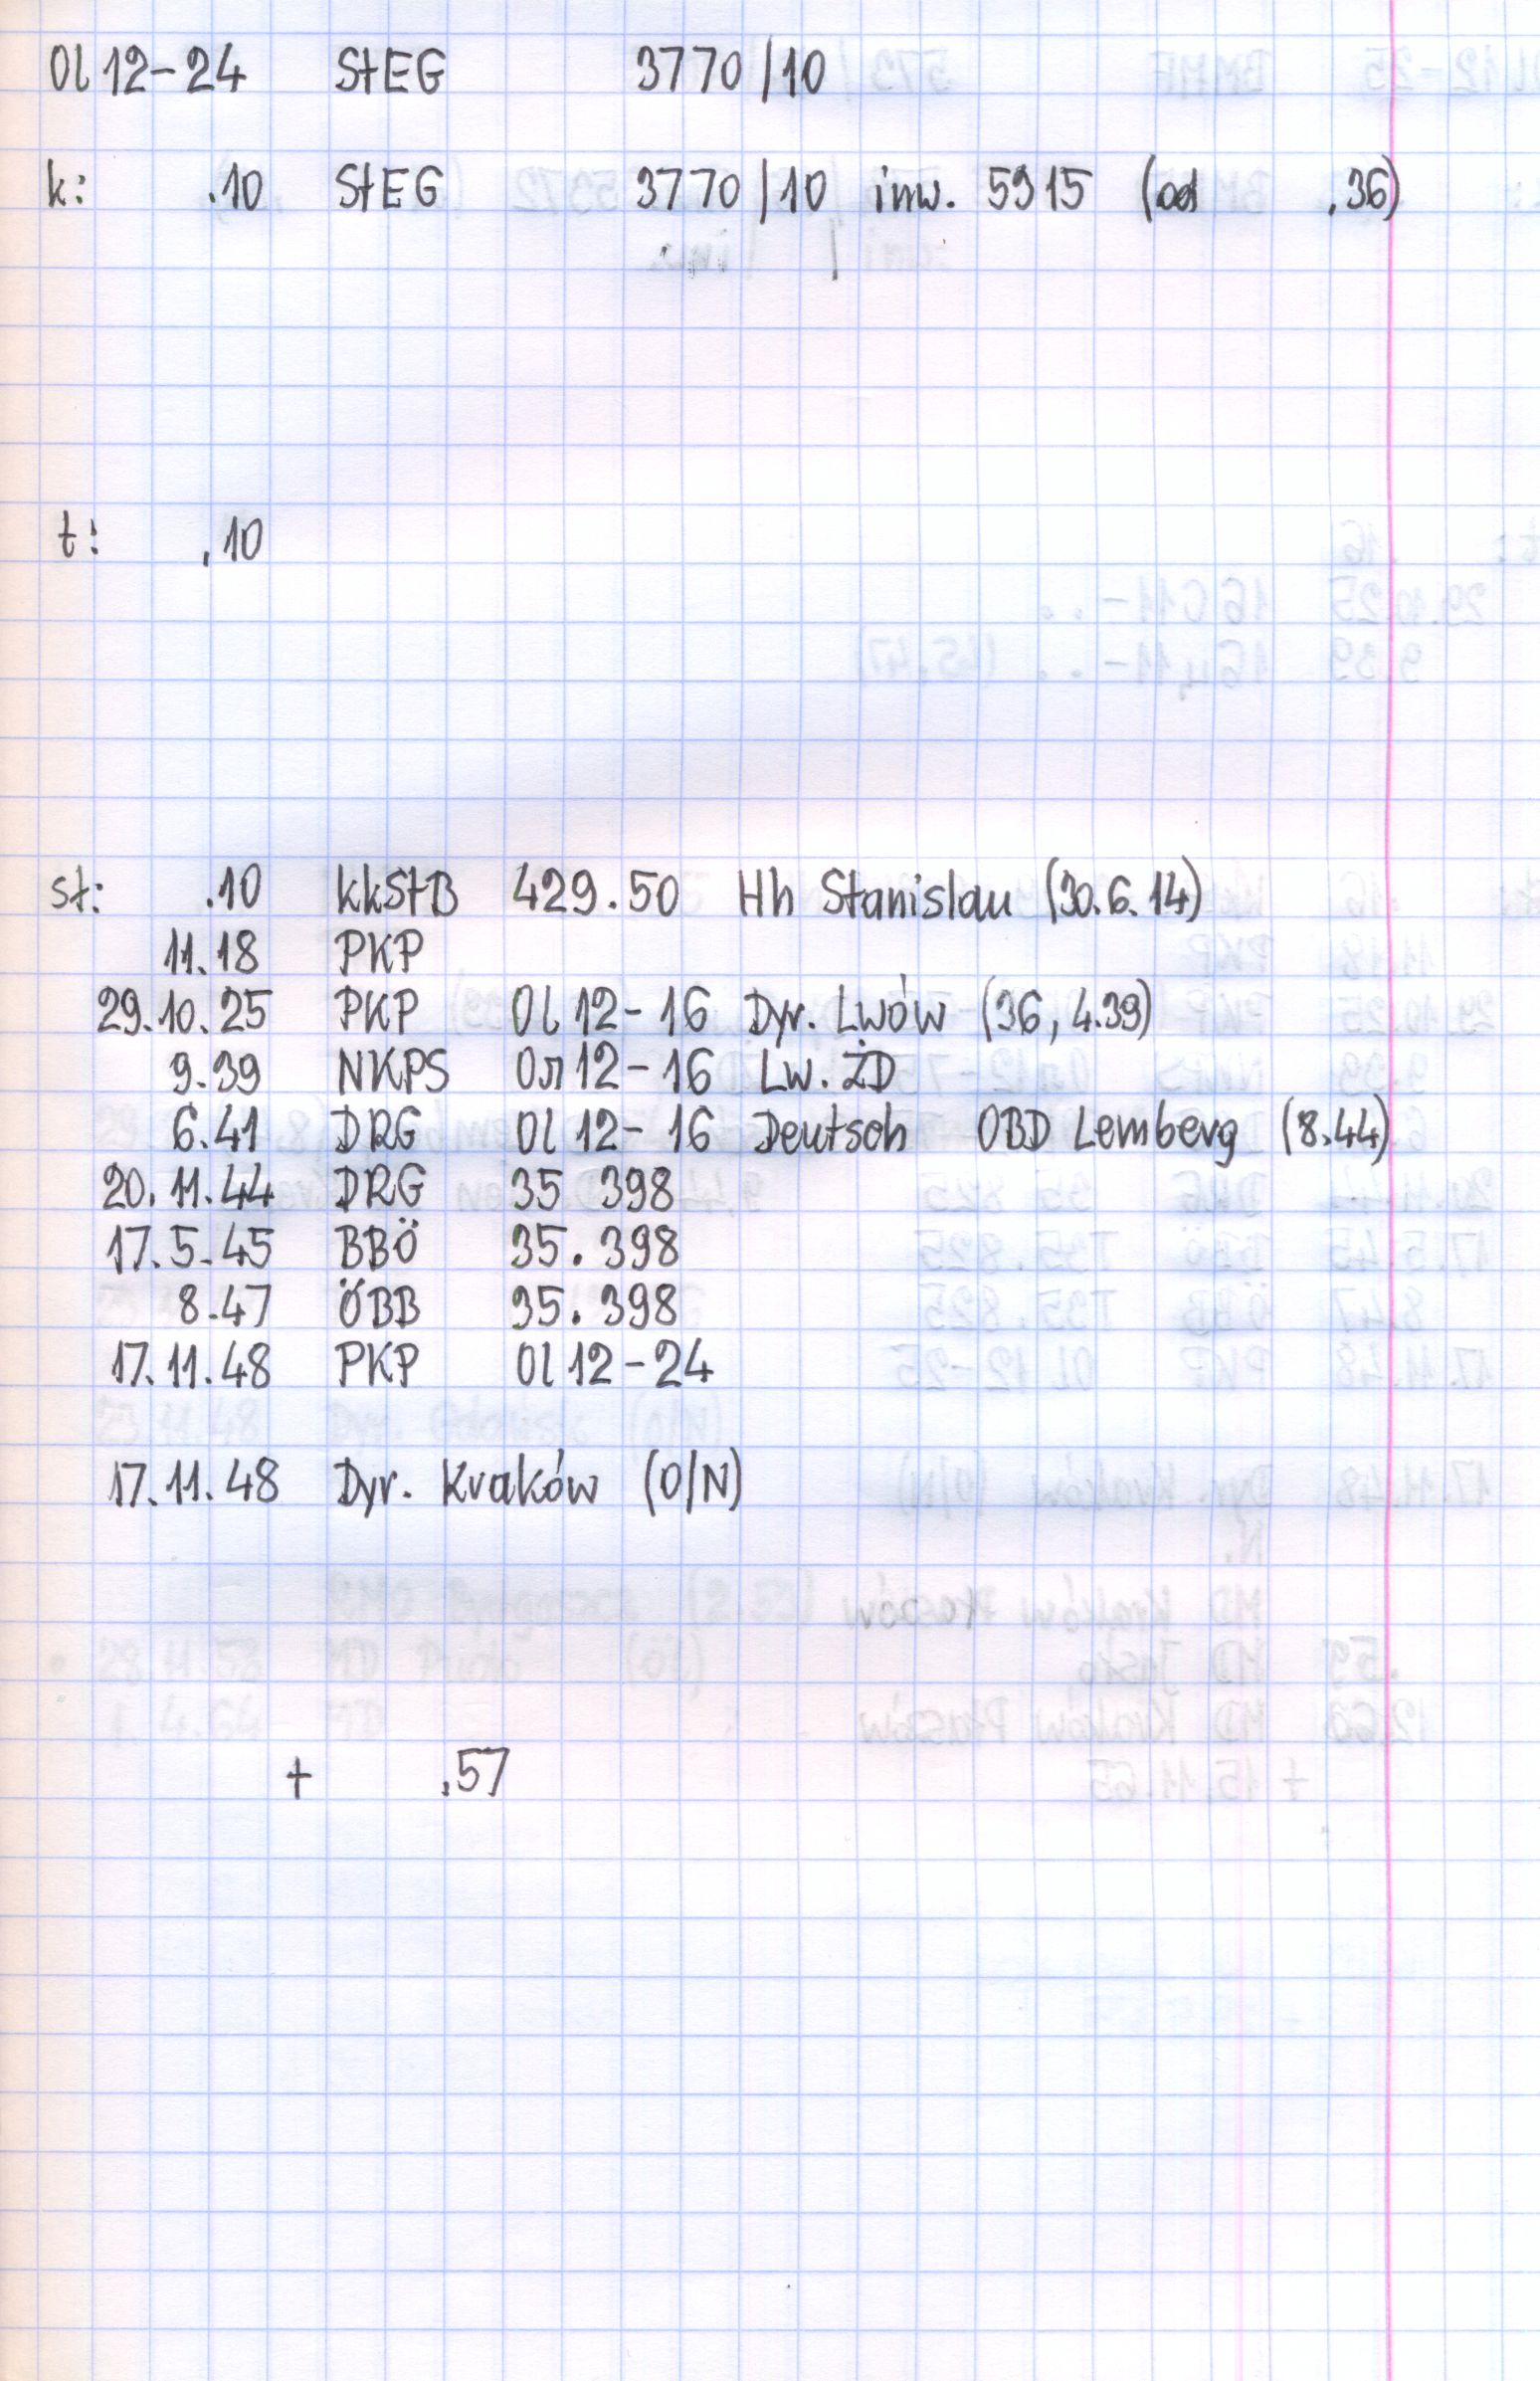 Ol 12-24 StEG 3770/10
k: .10 StEG 3770/10 inw. 5915 (od .36)
t: .10
st: .10 kkStB 429.50 Hh Stanislau (30.6.14)
11.18 PKP
29.10.25 PKP Ol 12-16 Dyr. Lwów (36, 4.39)
9.39 NKPS Ол 12-16 Lw. ŻD
6.41 DRG Ol 12-16 Deutsch OBD Lemberg (8.44)
20.11.44 DRG 35 398
17.5.45 BBÖ 35.398
8.47 ÖBB 35.398
17.11.48 PKP Ol 12-24
17.11.48 Dyr. Kraków (O/N)
+ .57